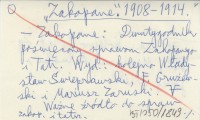 "Zakopane" 1908-1914.
- Zakopane: Dwutygodnik
poświęcony sprawom Zakopanego
i Tatr. Wyd.: kolejno Włady-
sław Szczepanowski, F. 
i Mariusz Zaruski.
Ważne źródło do spraw
zakop. i tatrz.